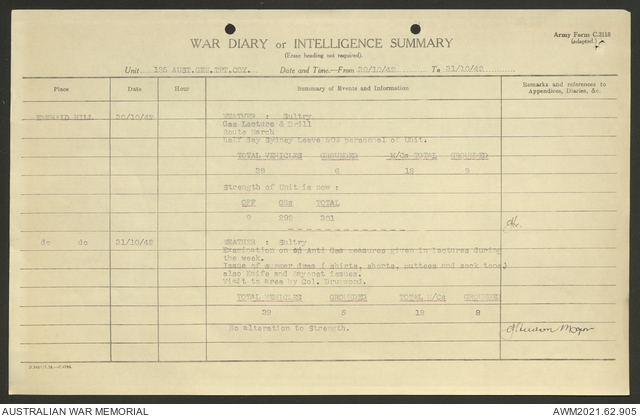 Army Form C.2118
(Adapted.)
WAR DIARY or INTELLIGENCE SUMMARY
(Erase heading not required).
Unit 136 AUST.GEN.TPT.COY. Date and Time—From 30/10/42 To 31/10/42
Place Date Hour Summary of Events and Information Remarks and references to Appendices, Diaries, &c.
EMERALD HILL 30/10/42 WEATHER : Sultry
Gas Lecture & Drill
Route March
Half day Sydney Leave 50% personnel of Unit.
TOTAL VEHICLES GROUNDED M/Cs TOTAL GROUNDED
39 6 12 9
Strength of Unit is now :
OFF ORs TOTAL
9 292 301
do do 31/10/42 WEATHER : Sultry
Examination on Anti Gas measures given in lectures during
the week.
Issue of summer dress ( shirts, shorts, puttees and sock tops)
also Knife and issues.
Visit to Area by Col. Drummond.
TOTAL VEHICLES GROUNDED TOTAL M/Cs GROUNDED
39 6 12 8
No alteration to Strength.
Major
AUSTRALIAN WAR MEMORIAL
AWM2021.62.905